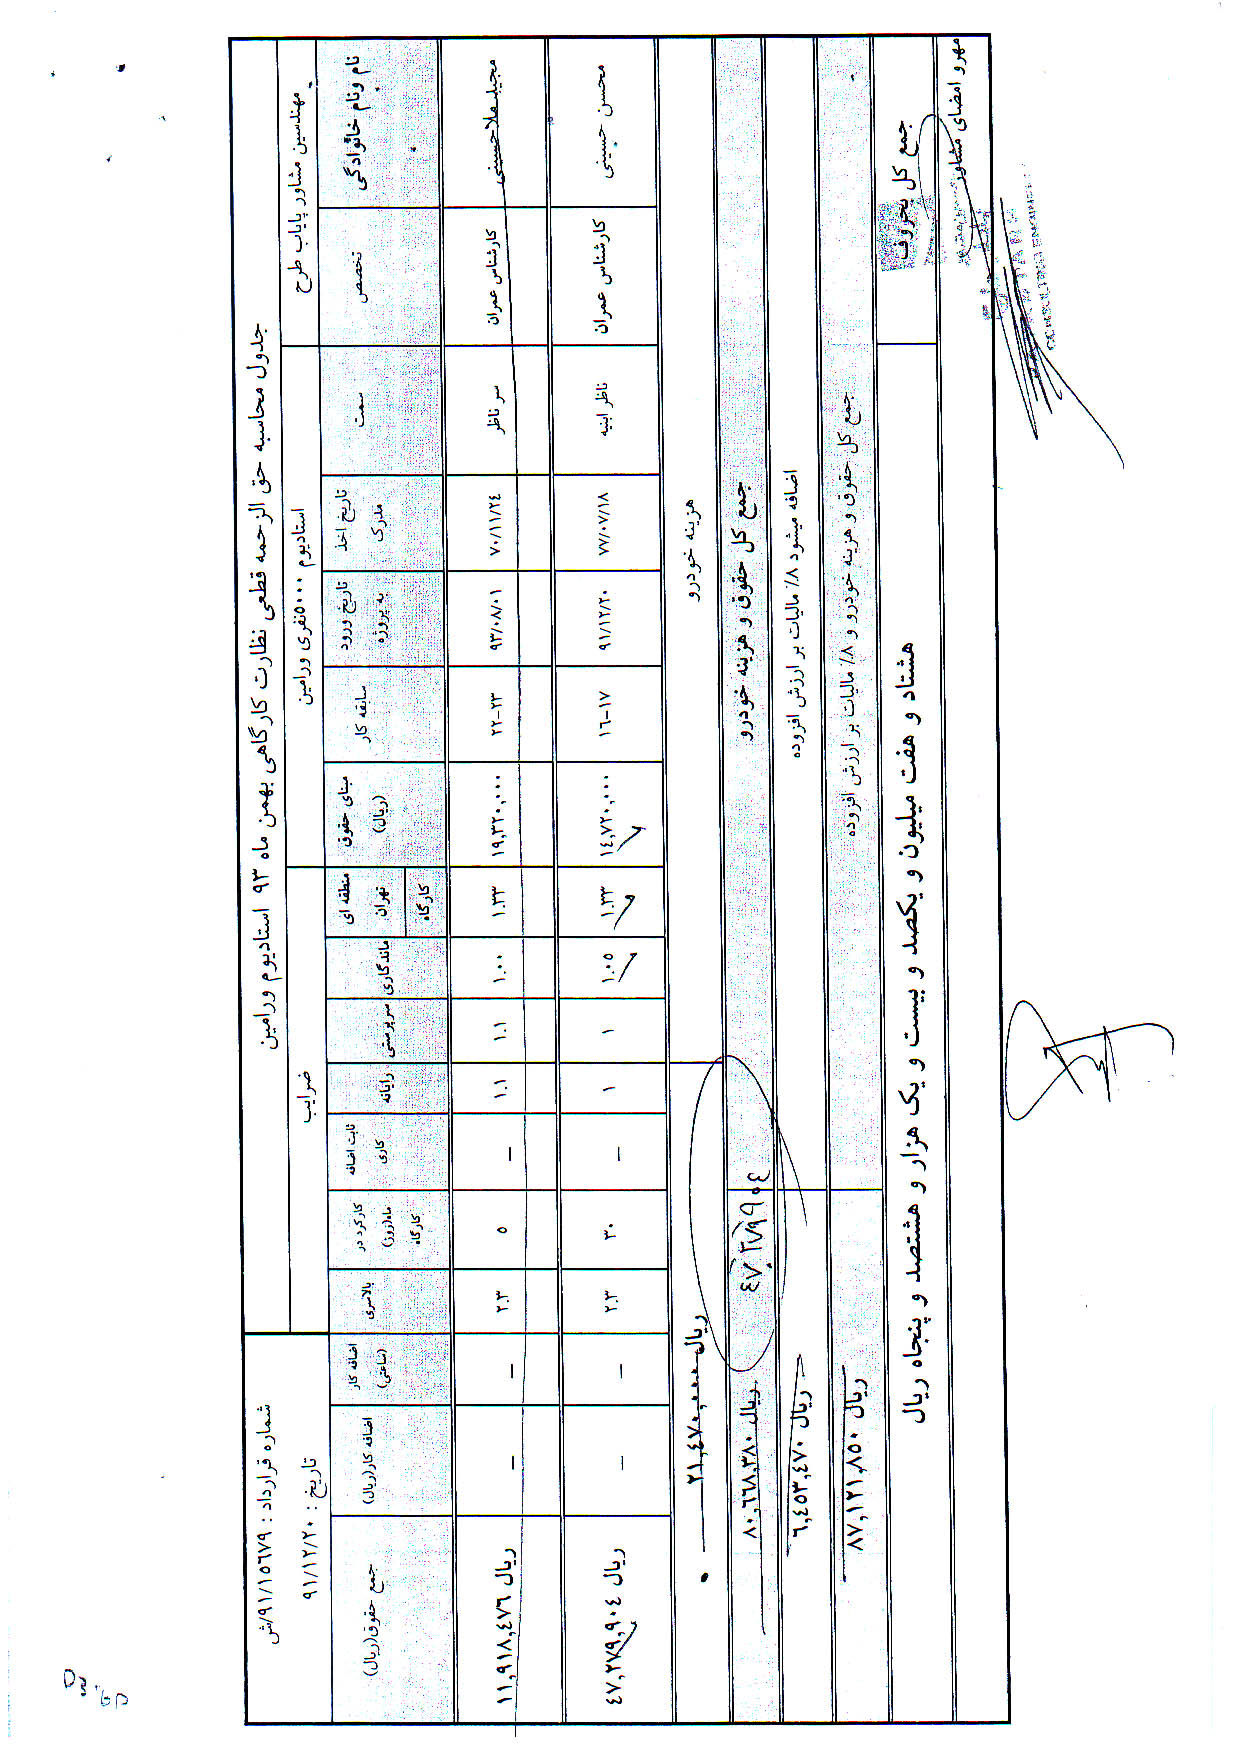 جدول محاسبه حق الزحمه قطعی نظارت کارگاهی بهمن ماه ۹۳ استادیوم ورامین
شماره قرارداد : ۹۱/۱۵۶۷۹/ش
مهندسین مشاور پایاب طرح
استادیوم ۵۰۰۰نفری ورامین
ضرایب
تاریخ : ۹۱/۱۲/۲۰
نام ونام خانوادگی
تخصص
سمت
تاریخ اخذ مدرک
تاریخ ورود به پروژه
سابقه کار
مبنای حقوق (ریال)
منطقه ای تهران کارگاه
ماندگاری
سرپرستی
رایانه
ثابت اضافه کاری
کارکرد در ماه(روز) کارگاه
بالاسری
اضافه کار (ساعتی)
اضافه کار(ریال)
جمع حقوق(ریال)
مجید ملاحسینی کارشناس عمران سر ناظر ۷۰/۱۱/۲۴ ۹۳/۰۸/۰۱ ۲۲-۲۳ ۱۹,۳۲۰,۰۰۰ ۱.۳۳ ۱.۰۰ ۱.۱ ۱.۱ – ۵ ۲.۳ – – ۱۱,۹۱۸,۴۷۶ ریال
محسن حسینی کارشناس عمران ناظر ابنیه ۷۷/۰۷/۱۸ ۹۱/۱۲/۲۰ ۱۶-۱۷ ۱۴,۷۲۰,۰۰۰ ۱.۳۳ ۱.۰۵ ۱ ۱ – ۳۰ ۲.۳ – – ۴۷,۲۷۹,۹۰۴ ریال
هزینه خودرو ۲۱,۴۷۰,۰۰۰ ریال
جمع کل حقوق و هزینه خودرو ۴۷,۲۷۹,۹۰۴ ۸۰,۶۶۸,۳۸۰ ریال
اضافه میشود ۸٪ مالیات بر ارزش افزوده ۶,۴۵۳,۴۷۰ ریال
جمع کل حقوق و هزینه خودرو و ۸٪ مالیات بر ارزش افزوده ۸۷,۱۲۱,۸۵۰ ریال
جمع کل بحروف هشتاد و هفت میلیون و یکصد و بیست و یک هزار و هشتصد و پنجاه ریال
مهرو امضای مشاور
CONSULTING ENGINEERS